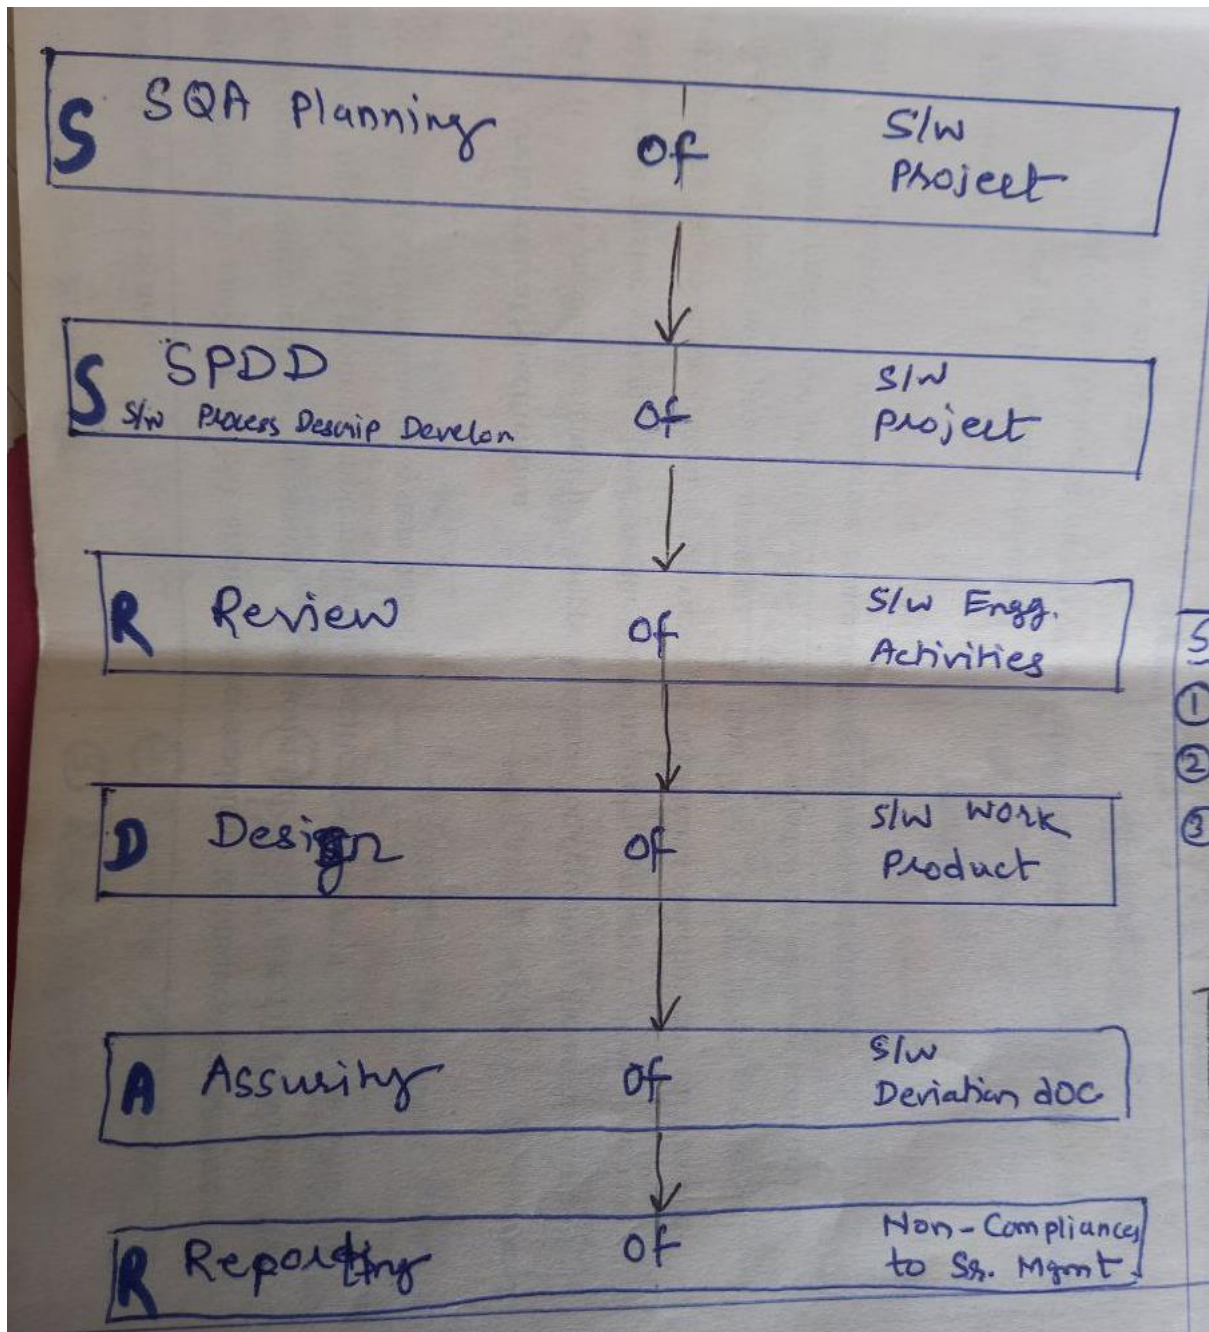 S SQA Planning Of S/w Project
S SPDD Of S/w Project
S/w Process Descrip Develon
R Review Of S/w Engg. Activities
D Design Of S/w Work Product
A Assurity Of S/w Deviation doc
R Reporting Of Non-Compliances to Sr. Mgmt.
S
①
②
③